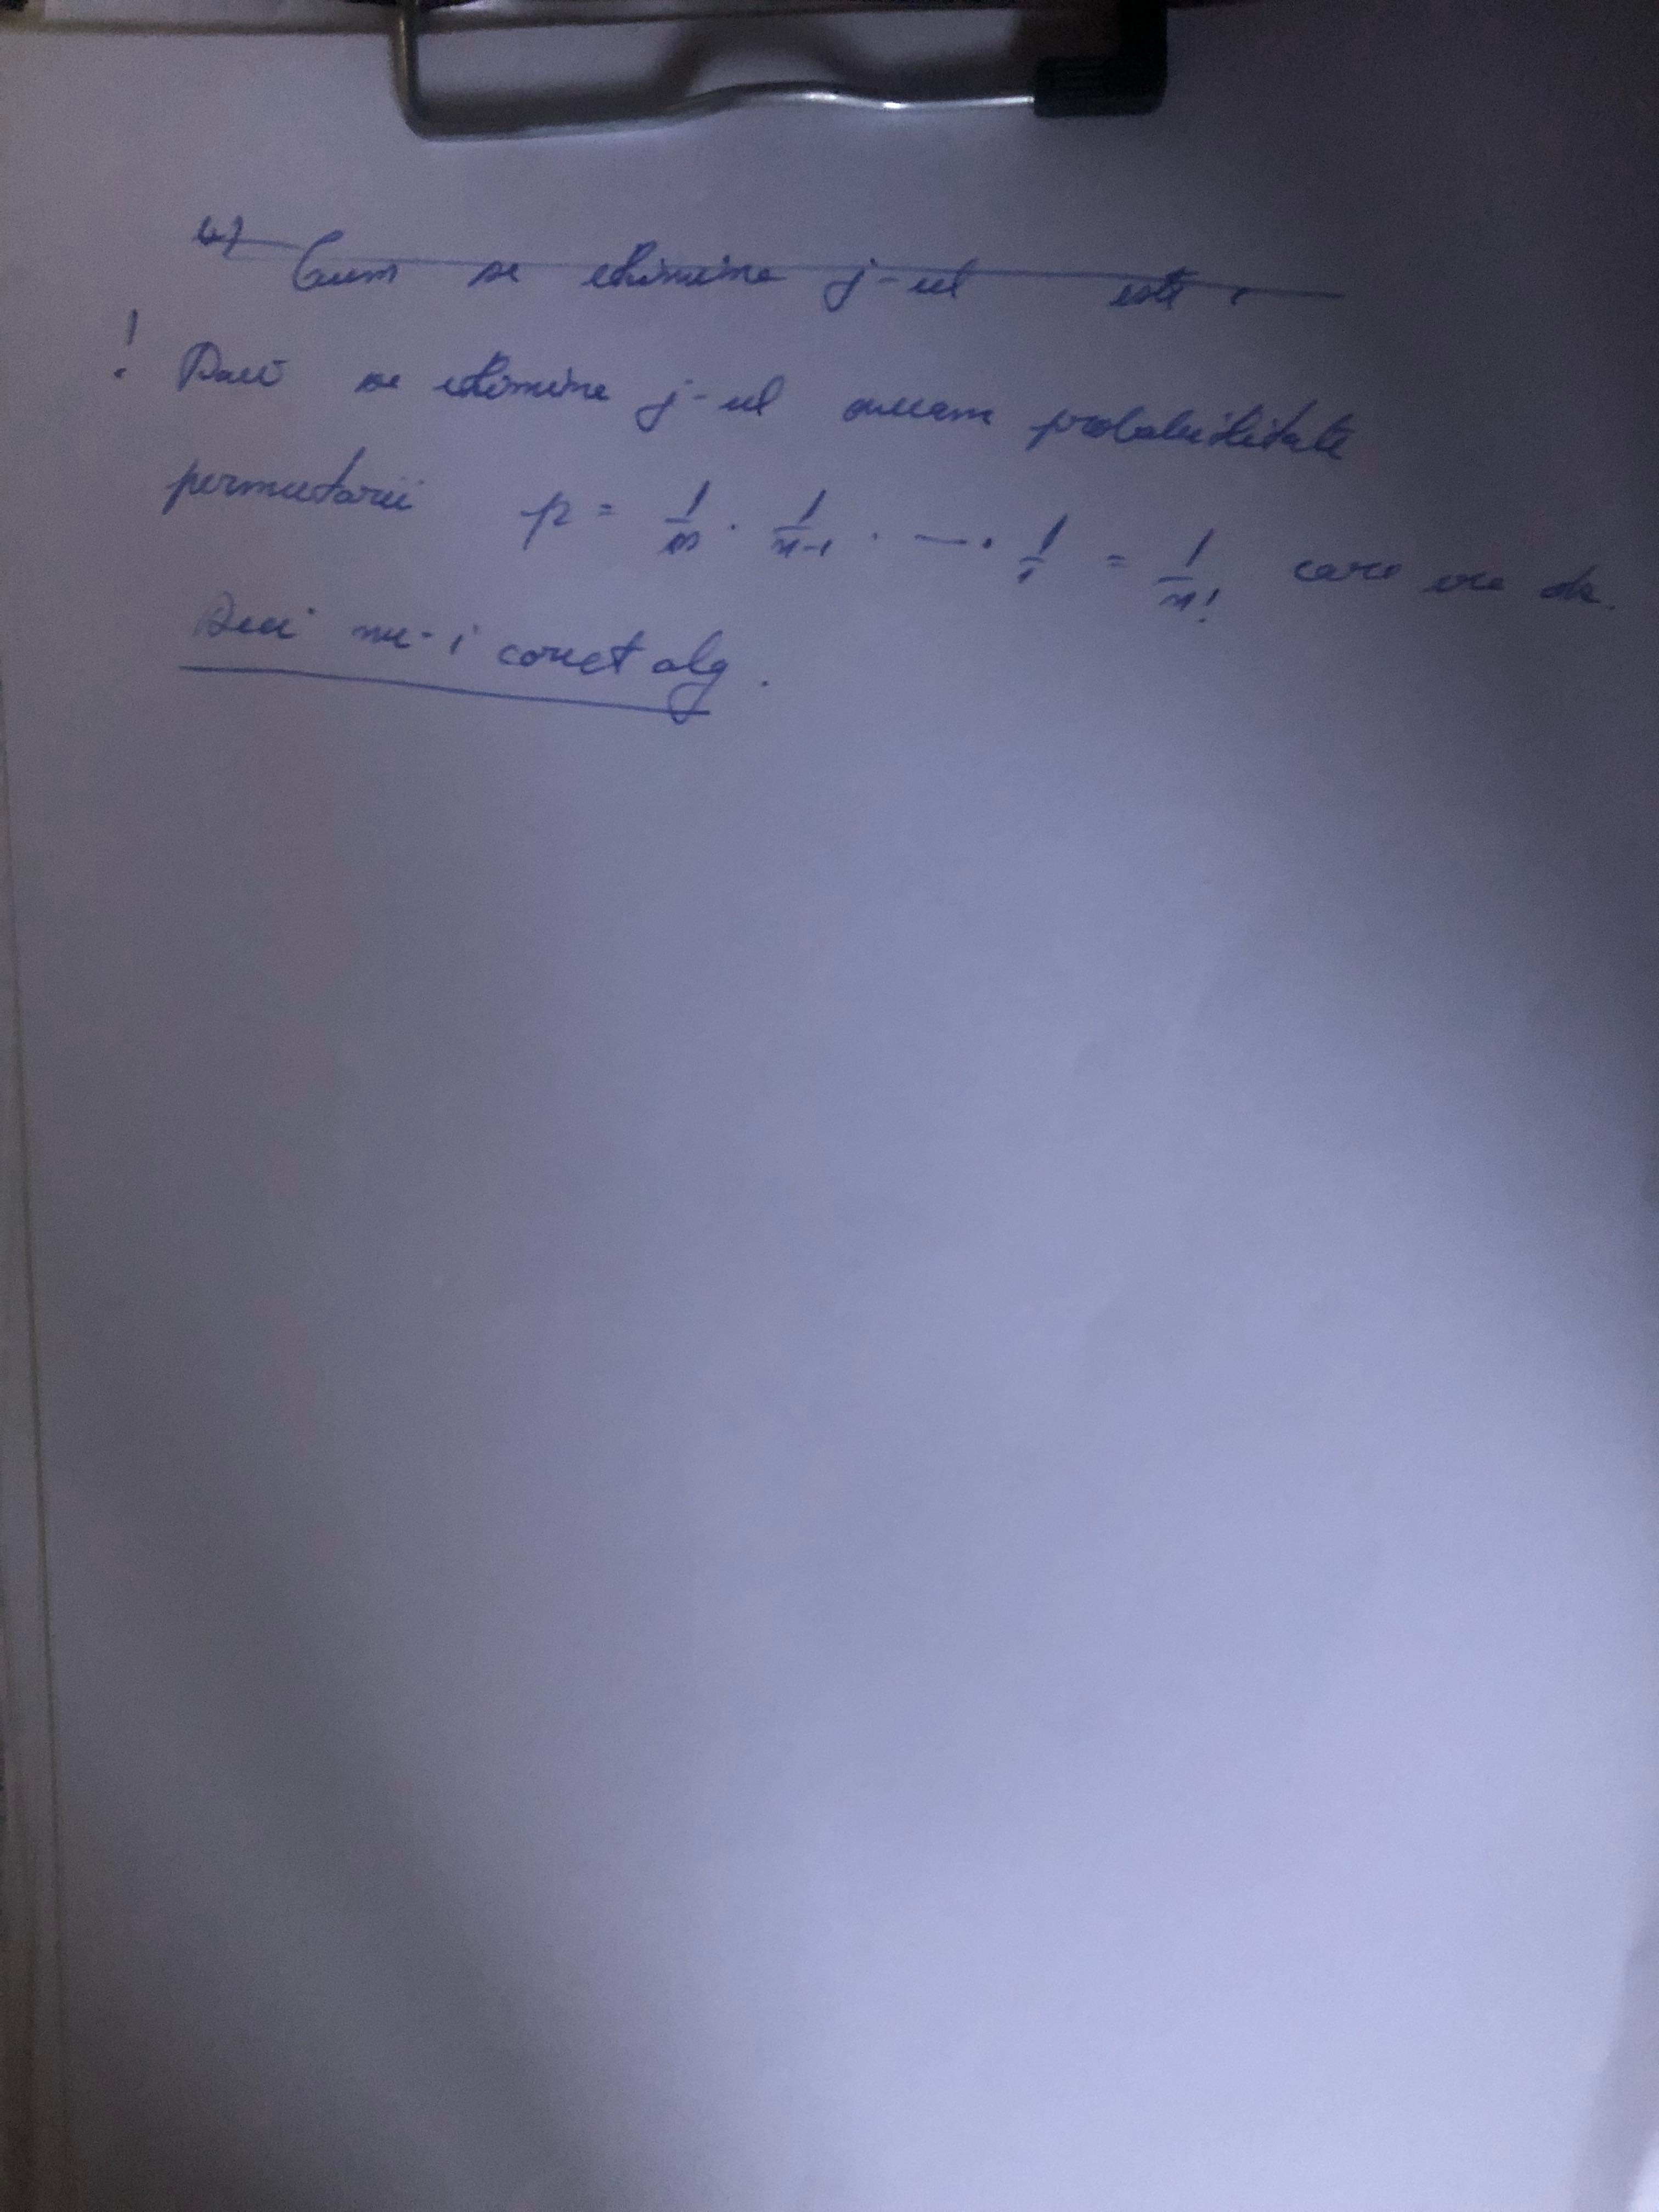 b) Cum se elimina j-ul este
! Dacă se elimina j-ul aveam probabilitate
permutarii p = 1/n · 1/n-1 · ... · 1/1 = 1/n! care era ok.
Deci nu-i corect alg.